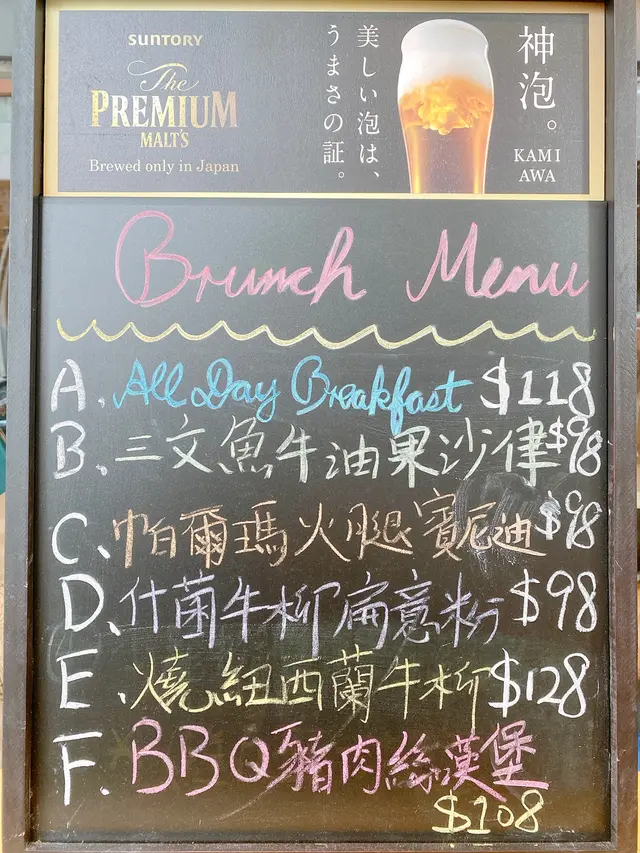 SUNTORY
The
PREMIUM
MALT'S
Brewed only in Japan
美しい泡は、
うまさの証。
神泡。
KAMI
AWA
Brunch Menu
A. All Day Breakfast $118
B、三文魚牛油果沙律 $98
C、帕爾瑪火腿賓尼迪 $98
D、什菌牛柳扁意粉 $98
E、燒紐西蘭牛柳 $128
F. BBQ豬肉絲漢堡
$108